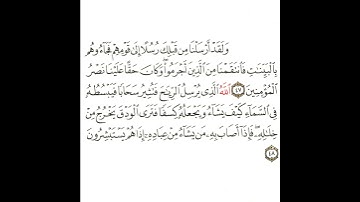 وَلَقَدْ أَرْسَلْنَا مِن قَبْلِكَ رُسُلًا إِلَىٰ قَوْمِهِمْ فَجَاءُوهُم
بِالْبَيِّنَاتِ فَانتَقَمْنَا مِنَ الَّذِينَ أَجْرَمُوا ۖ وَكَانَ حَقًّا عَلَيْنَا نَصْرُ
الْمُؤْمِنِينَ ٤٧ اللَّهُ الَّذِي يُرْسِلُ الرِّيَاحَ فَتُثِيرُ سَحَابًا فَيَبْسُطُهُ
فِي السَّمَاءِ كَيْفَ يَشَاءُ وَيَجْعَلُهُ كِسَفًا فَتَرَى الْوَدْقَ يَخْرُجُ مِنْ
خِلَالِهِ ۖ فَإِذَا أَصَابَ بِهِ مَن يَشَاءُ مِنْ عِبَادِهِ إِذَا هُمْ يَسْتَبْشِرُونَ
٤٨